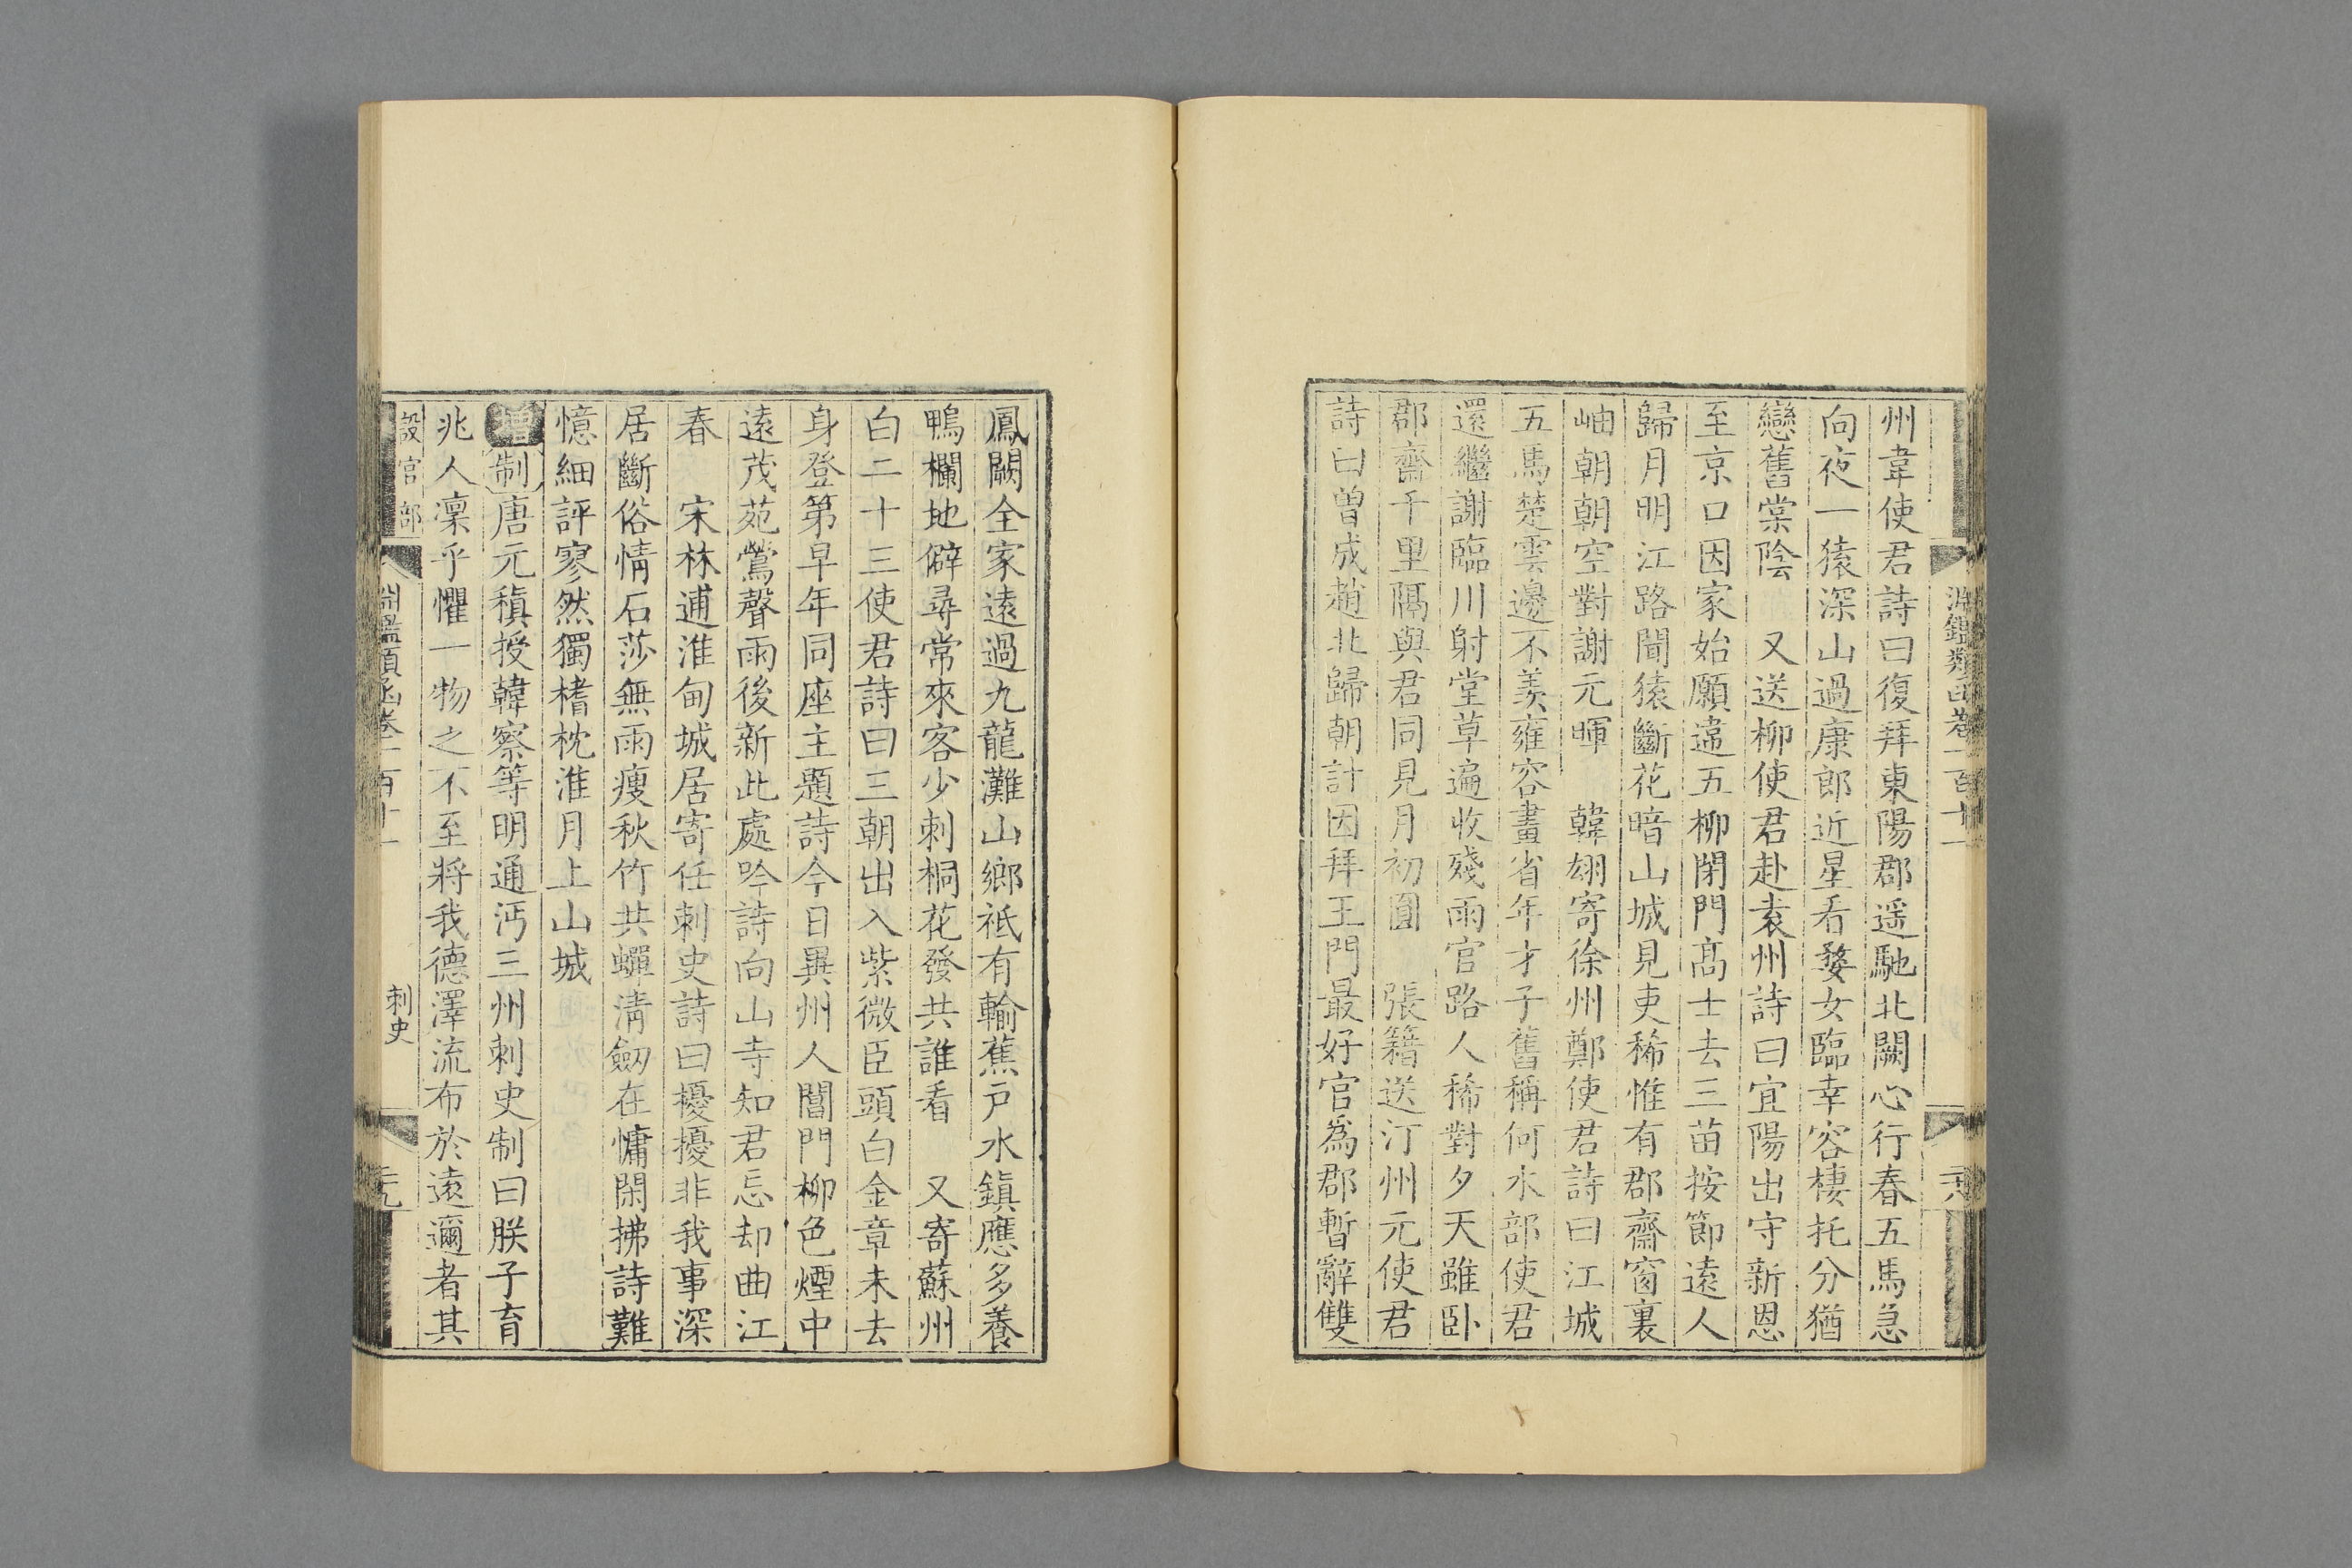 淵鑑類函卷一百十一
州韋使君詩曰復拜東陽郡遥馳北闕心行春五馬急
向夜一猿深山過康郎近星看婺女臨幸容棲托分猶
戀舊棠陰　又送柳使君赴袁州詩曰宜陽出守新恩
至京口因家始願違五柳閉門髙士去三苗按節遠人
歸月明江路聞猿斷花暗山城見吏稀惟有郡齋窗裏
岫朝朝空對謝元暉　韓翃寄徐州鄭使君詩曰江城
五馬楚雲邊不羨雍容畫省年才子舊稱何水部使君
還繼謝臨川射堂草遍收殘雨官路人稀對夕天雖卧
郡齋千里隔與君同見月初圓　張籍送汀州元使君
詩曰曽成趙北歸朝計因拜王門最好官為郡暫辭雙
鳳闕全家遠過九龍灘山鄉祗有輸蕉戸水鎮應多養
鴨欄地僻尋常來客少刺桐花發共誰看　又寄蘇州
白二十三使君詩曰三朝出入紫微臣頭白金章未去
身登第早年同座主題詩今日異州人閶門柳色煙中
遠茂苑鶯聲雨後新此處吟詩向山寺知君忘却曲江
春　宋林逋淮甸城居寄任刺史詩曰擾擾非我事深
居斷俗情石莎無雨瘦秋竹共蟬清劒在慵閑拂詩難
憶細評寥然獨榰枕淮月上山城
增制唐元稹授韓察等明通沔三州刺史制曰朕子育
兆人凜乎懼一物之不至將我德澤流布於遠邇者其
設官部　淵鑑類函卷一百十一　刺史　二九